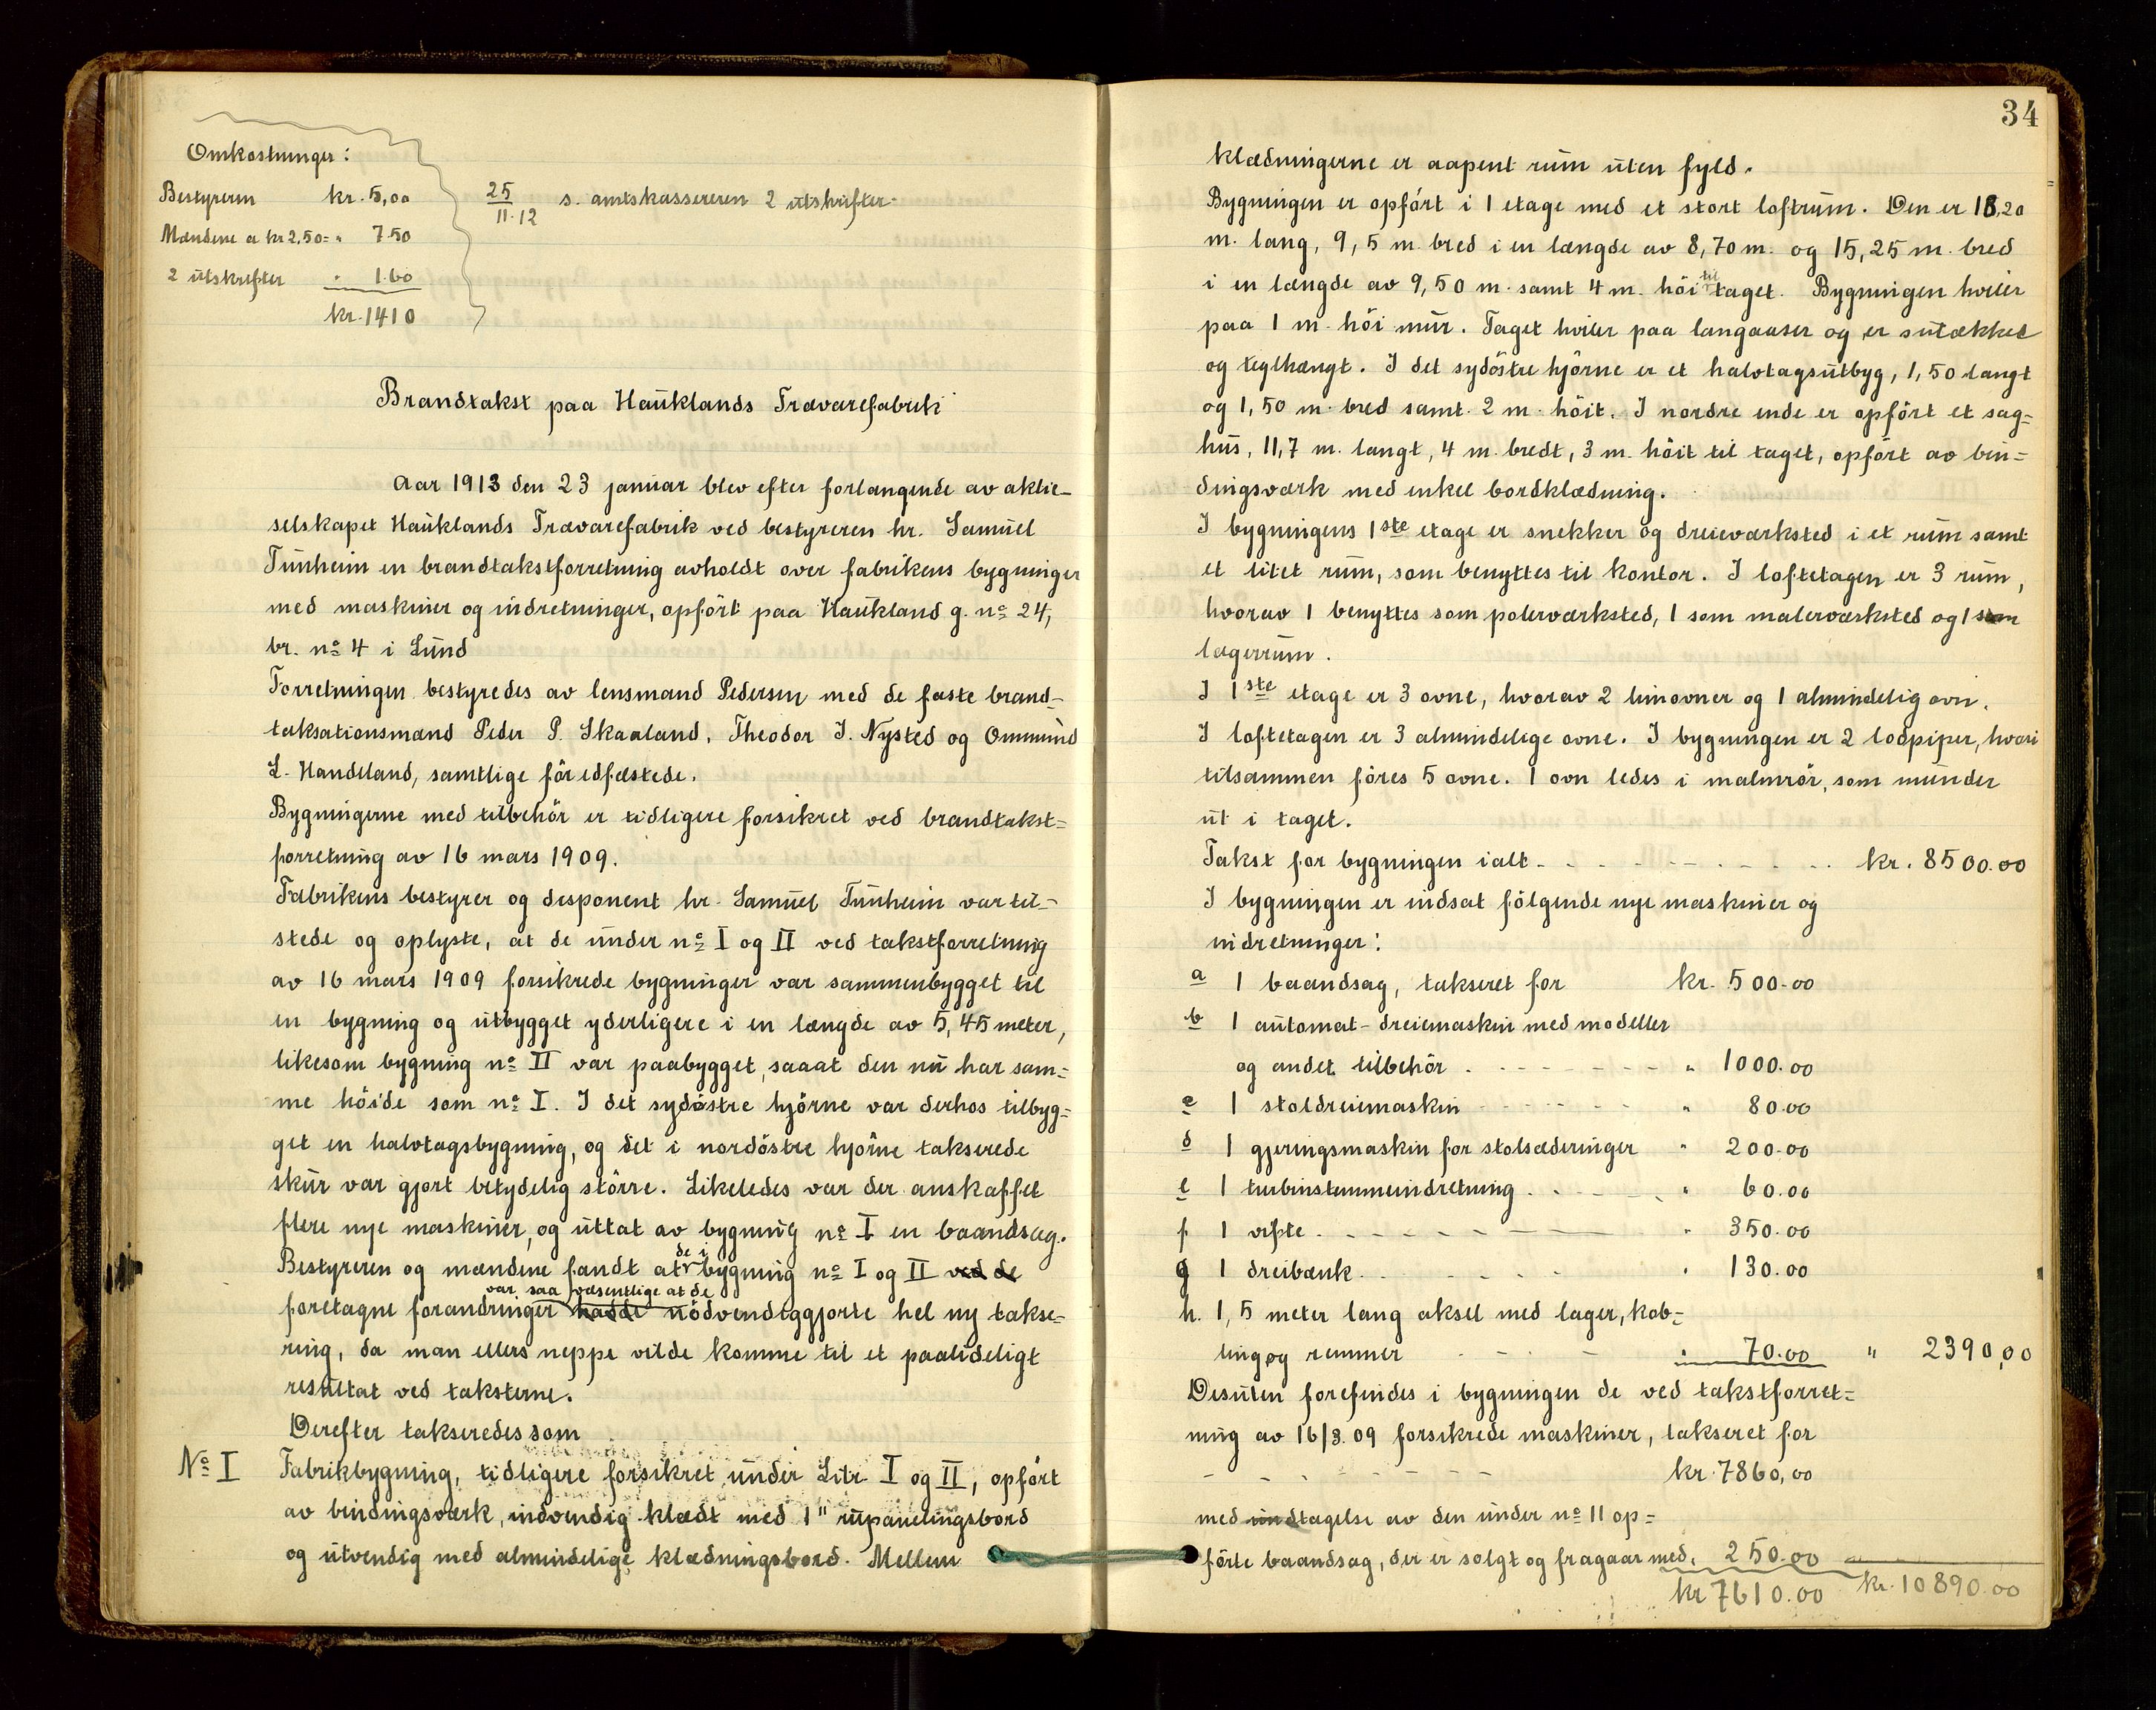 Omkostninger:
Bestyreren kr. 5,00
Mændene a kr 2,50 = " 7.50
2 utskrifter " 1.60
kr. 1410
25/11.12 s. amtskassereren 2 utskrifter.
Brandtakst paa Hauklands Trævarefabrik
Aar 1913 den 23 januar blev efter forlangende av aktie-
selskapet Hauklands Trævarefabrik ved bestyreren hr. Samuel
Tunheim en brandtakstforretning avholdt over fabrikens bygninger
med maskiner og indretninger, opfört paa Haukland g. no 24,
br. no 4 i Lund
Forretningen bestyredes av lensmand Pedersen med de faste brand-
taksationsmænd Peder P. Skaaland, Theodor J. Nysted og Ommund
L. Handeland, samtlige för edfæstede.
Bygningerne med tilbehör er tidligere forsikret ved brandtakst=
forretning av 16 mars 1909.
Fabrikens bestyrer og disponent hr. Samuel Tunheim var til-
stede og oplyste, at de under no I og II ved takstforretning
av 16 mars 1909 forsikrede bygninger var sammenbygget til
en bygning og utbygget yderligere i en længde av 5,45 meter,
likesom bygning no II var paabygget, saaat den nu har sam=
me höide som no I. I det sydöstre hjörne var derhos tilbyg=
get en halvtagsbygning, og det i nordöstre hjörne takserede
skur var gjort betydelig större. Likeledes var der anskaffet
flere nye maskiner, og uttat av bygning no I en baandsag.
Bestyreren og mændene fandt at de i bygning no I og II ved de
foretagne forandringer var saa væsentlige at de hadde nödvendiggjorte hel ny takse=
ring, da man ellers neppe vilde komme til et paalideligt
resultat ved taksterne.
Derefter takseredes som
No I Fabrikbygning, tidligere forsikret under Litr. I og II, opfört
av bindingsverk, indvendig klædt med 1" rupanelingsbord
og utvendig med almindelige klædningsbord. Mellem
34
klædningerne er aapent rum uten fyld.
Bygningen er opfört i 1 etage med et stort loftrum. Den er 18,20
m. lang, 9,5 m. bred i en længde av 8,70 m. og 15,25 m. bred
i en længde av 9,50 m. samt 4 m. höi til taget. Bygningen hviler
paa 1 m. höi mur. Taget hviler paa langaaser og er sutækket
og teglhængt. I det sydöstre hjörne er et halvtagsutbyg, 1,50 langt
og 1,50 m. bred samt 2 m. höit. I nordre ende er opfört et sag=
hus, 11,7 m. langt, 4 m. bredt, 3 m. höit til taget, opfört av bin=
dingsværk med enkel bordklædning.
I bygningens 1ste etage er snekker og dreieværksted i et rum samt
et litet rum, som benyttes til kontor. I loftetagen er 3 rum,
hvorav 1 benyttes som polerværksted, 1 som malerværksted og 1 som
lagerrum.
I 1ste etage er 3 ovne, hvorav 2 limovner og 1 almindelig ovn.
I loftetagen er 3 almindelige ovne. I bygningen er 2 lodpiper, hvori
tilsammen föres 5 ovne. 1 ovn ledes i malmrör, som munder
ut i taget.
Takst for bygningen ialt kr. 8500.00
I bygningen er indsat fölgende nye maskiner og
indretninger:
a 1 baandsag, takseret for kr. 500.00
b 1 automat-dreiemaskin med modeller
og andet tilbehör " 1000.00
c 1 stoldreiemaskin " 80.00
d 1 gjeringsmaskin for stolsæderinger " 200.00
e 1 turbinstemmeindretning " 60.00
f 1 vifte " 350.00
g 1 dreibænk " 130.00
h. 1,5 meter lang aksel med lager, kob=
ling og remmer " 70.00 " 2390,00
Desuten forefindes i bygningen de ved takstforret=
ning av 16/3.09 forsikrede maskiner, takseret for
kr. 7860,00
med undtagelse av den under no 11 op=
förte baandsag, der er solgt og fragaar med. 250.00
kr 7610.00 kr. 10890.00